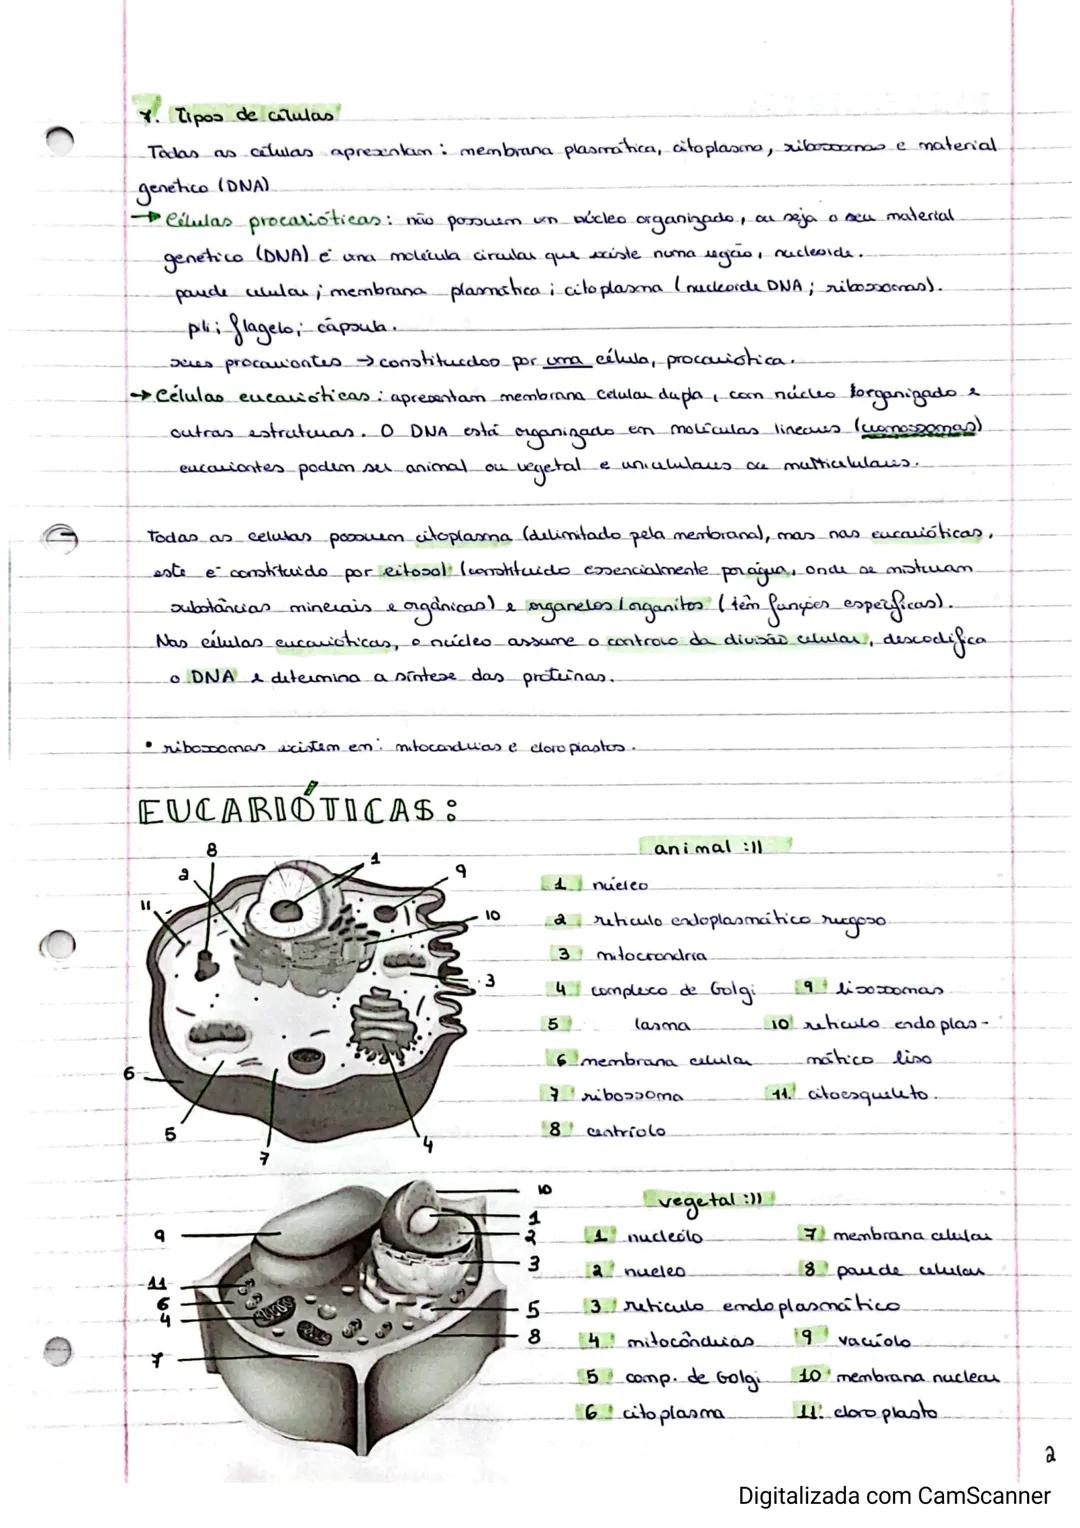 7. Tipos de células
Todas as células apresentam: membrana plasmática, citoplasma, ribossomas e material
genético (DNA)
→ Células procarióticas: não possuem um núcleo organizado, ou seja o seu material
genético (DNA) é uma molécula circular que existe numa região, nucleoide.
parede celular; membrana plasmática; citoplasma (nucleoide DNA; ribossomas).
pli; flagelo; cápsula.
seres procariontes → constituídos por uma célula, procariótica.
→ Células eucarióticas: apresentam membrana celular dupla, com núcleo organizado e
outras estruturas. O DNA está organizado em moléculas lineares (cromossomas)
eucariontes podem ser animal ou vegetal e unicelulares ou multicelulares.
Todas as celulas possuem citoplasma (delimitado pela membrana), mas nas eucarióticas,
este é constituido por citosol (constituido essencialmente por água, onde se misturam
substâncias minerais e orgânicas) e organelos/organitos (têm funções específicas).
Nas células eucarióticas, o núcleo assume o controlo da divisão celular, descodifica
o DNA e determina a síntese das proteínas.
• ribossomas existem em: mitocondrias e cloroplastos.
EUCARIÓTICAS:
animal :))
8
2
1
9
11
10
3
6
5
7
4
1 núcleo
2 reticulo endoplasmático rugoso
3 mitocrondria
4 complexo de Golgi
9 lisossomas
5 lasma
10 reticulo endoplas-
mático liso
6 membrana celular
7 ribossoma
11. citoesqueleto.
8 centríolo
vegetal :))
10
1
2
3
5
8
9
11
6
4
7
1 nucleólo
7 membrana celular
2 nucleo
8 parede celular
3 reticulo endoplasmático
4 mitocôndrias
9 vacúolo
5 comp. de Golgi
10 membrana nuclear
6 citoplasma
11. cloroplasto
2
Digitalizada com CamScanner